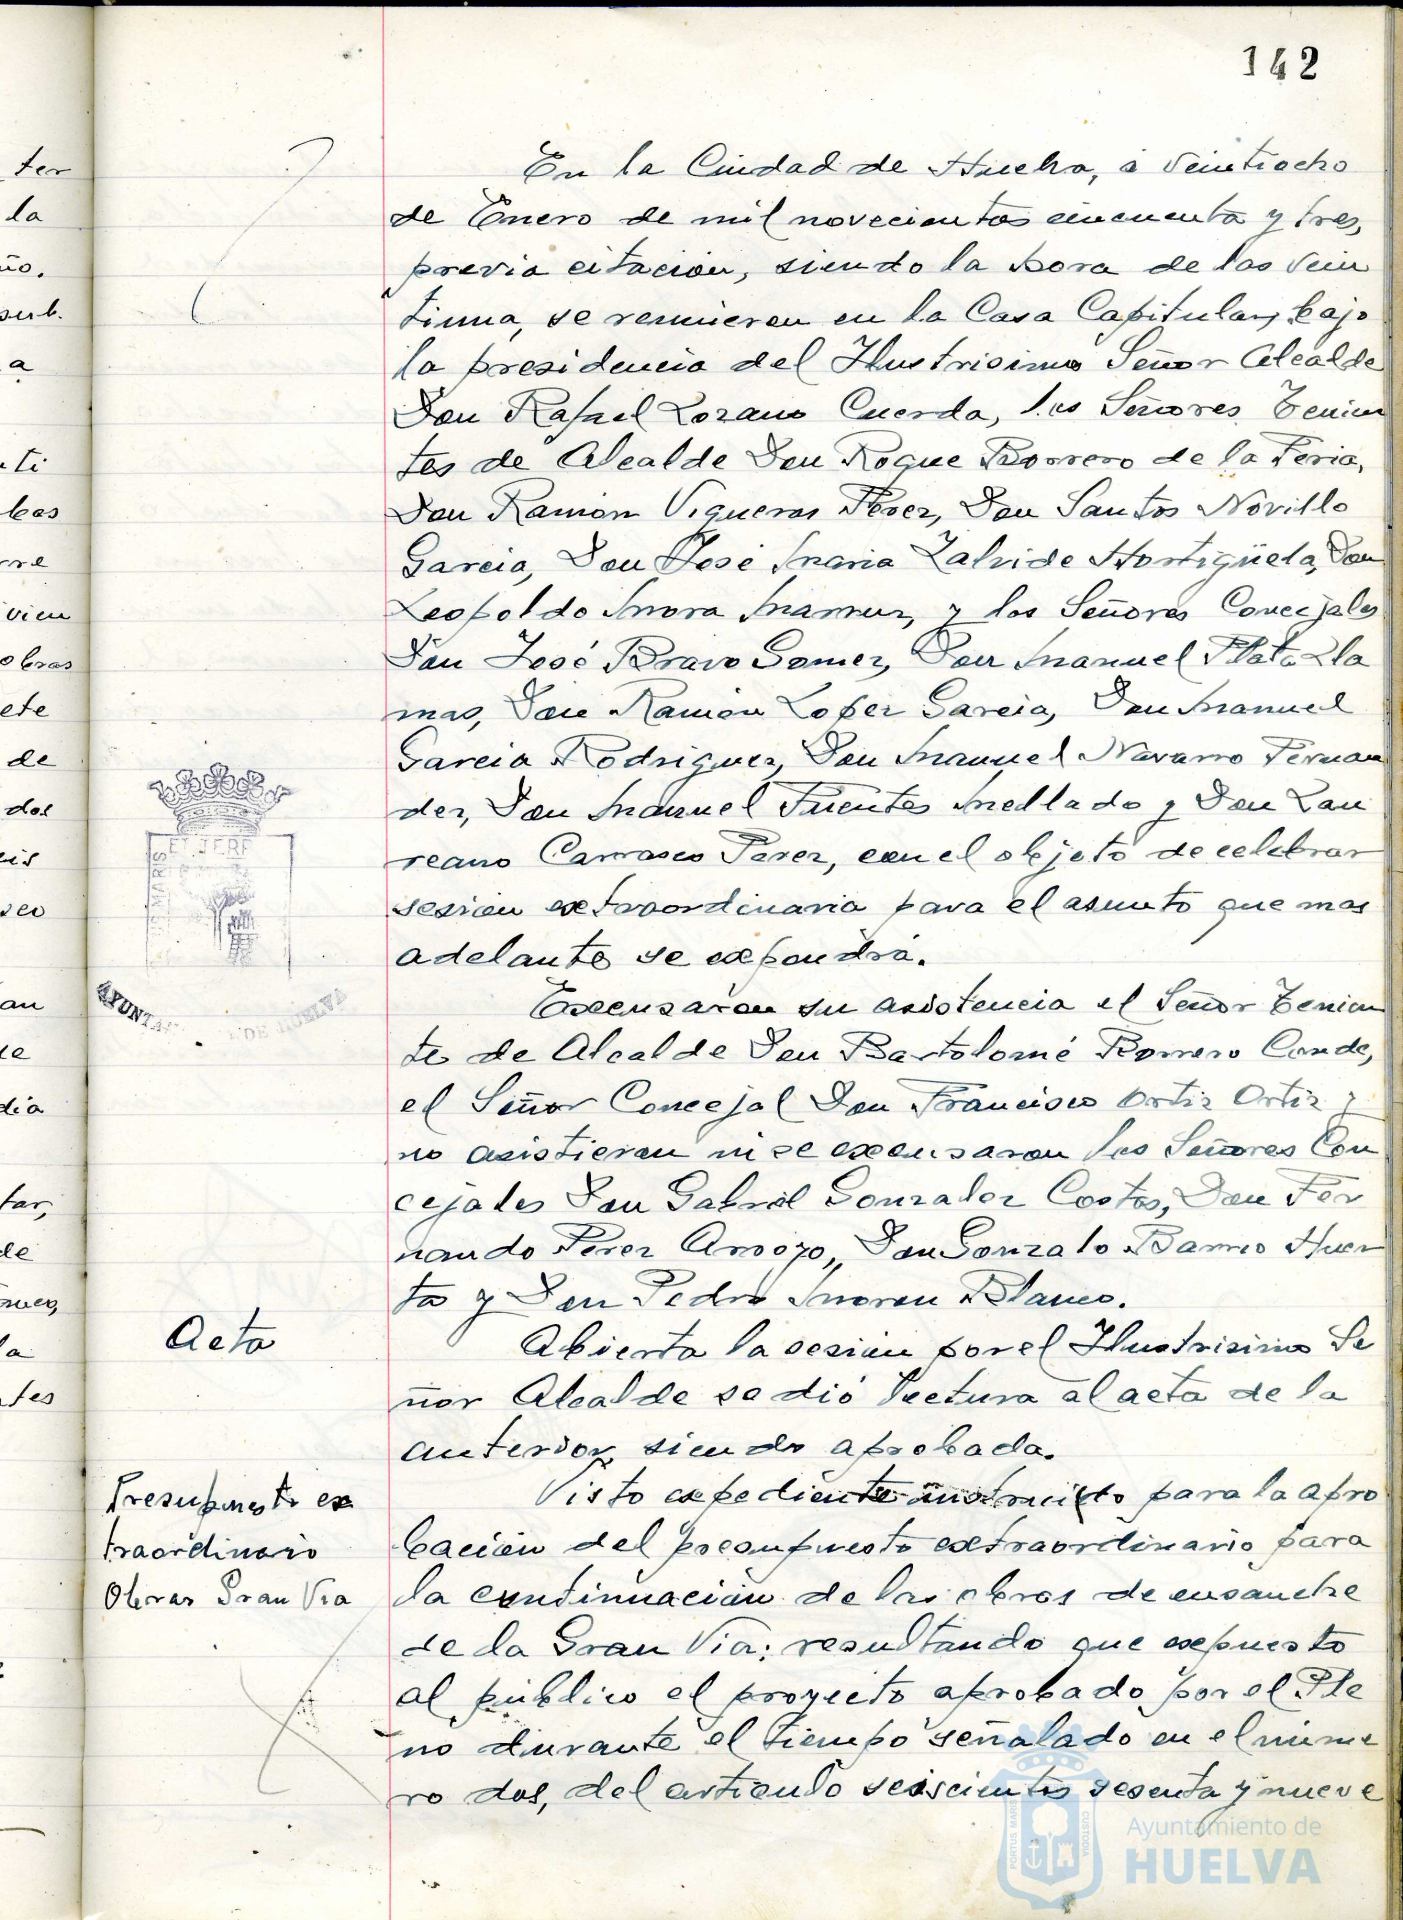 142
En la Ciudad de Huelva, á veintiocho
de Enero de mil novecientos cincuenta y tres,
previa citación, siendo la hora de las vein
tiuna, se reunieron en la Casa Capitular, bajo
la presidencia del Ilustrisimo Señor Alcalde
Don Rafael Lozano Cuerda, los Señores Tenien
tes de Alcalde Don Roque Borrero de la Feria,
Don Ramón Vigueras Perez, Don Santos Novillo
Garcia, Don José Maria Zalvide Hortigüela, Don
Leopoldo Mora Marruz, y los Señores Concejales
Don José Bravo Gomez, Don Manuel Plata Lla
mas, Don Ramón Lopez Garcia, Don Manuel
Garcia Rodriguez, Don Manuel Navarro Fernan
dez, Don Manuel Fuentes Mellado y Don Lau
reano Carrasco Perez, con el objeto de celebrar
sesion extraordinaria para el asunto que mas
adelante se expondrá.
Excusaron su asistencia el Señor Tenien
te de Alcalde Don Bartolomé Borrero Conde,
el Señor Concejal Don Francisco Ortiz Ortiz y
no asistieron ni se excusaron los Señores Con
cejales Don Gabriel Gonzalez Costas, Don Fer
nando Perez Arroyo, Don Gonzalo Barrio Huer
ta y Don Pedro Moron Blanco.
Acta
Abierta la sesion por el Ilustrisimo Se
ñor Alcalde se dió lectura al acta de la
anterior, siendo aprobada.
Presupuesto ex
traordinario
Obras Gran Via
Visto expediente instruido para la apro
bación del presupuesto extraordinario para
la continuación de las obras de ensanche
de la Gran Via; resultando que expuesto
al público el proyecto aprobado por el Ple
no durante el tiempo señalado en el núme
ro dos, del articulo seiscientos sesenta y nueve
AYUNTA DE HUELVA
PORTUS MARIS
CUSTODIA
Ayuntamiento de
HUELVA